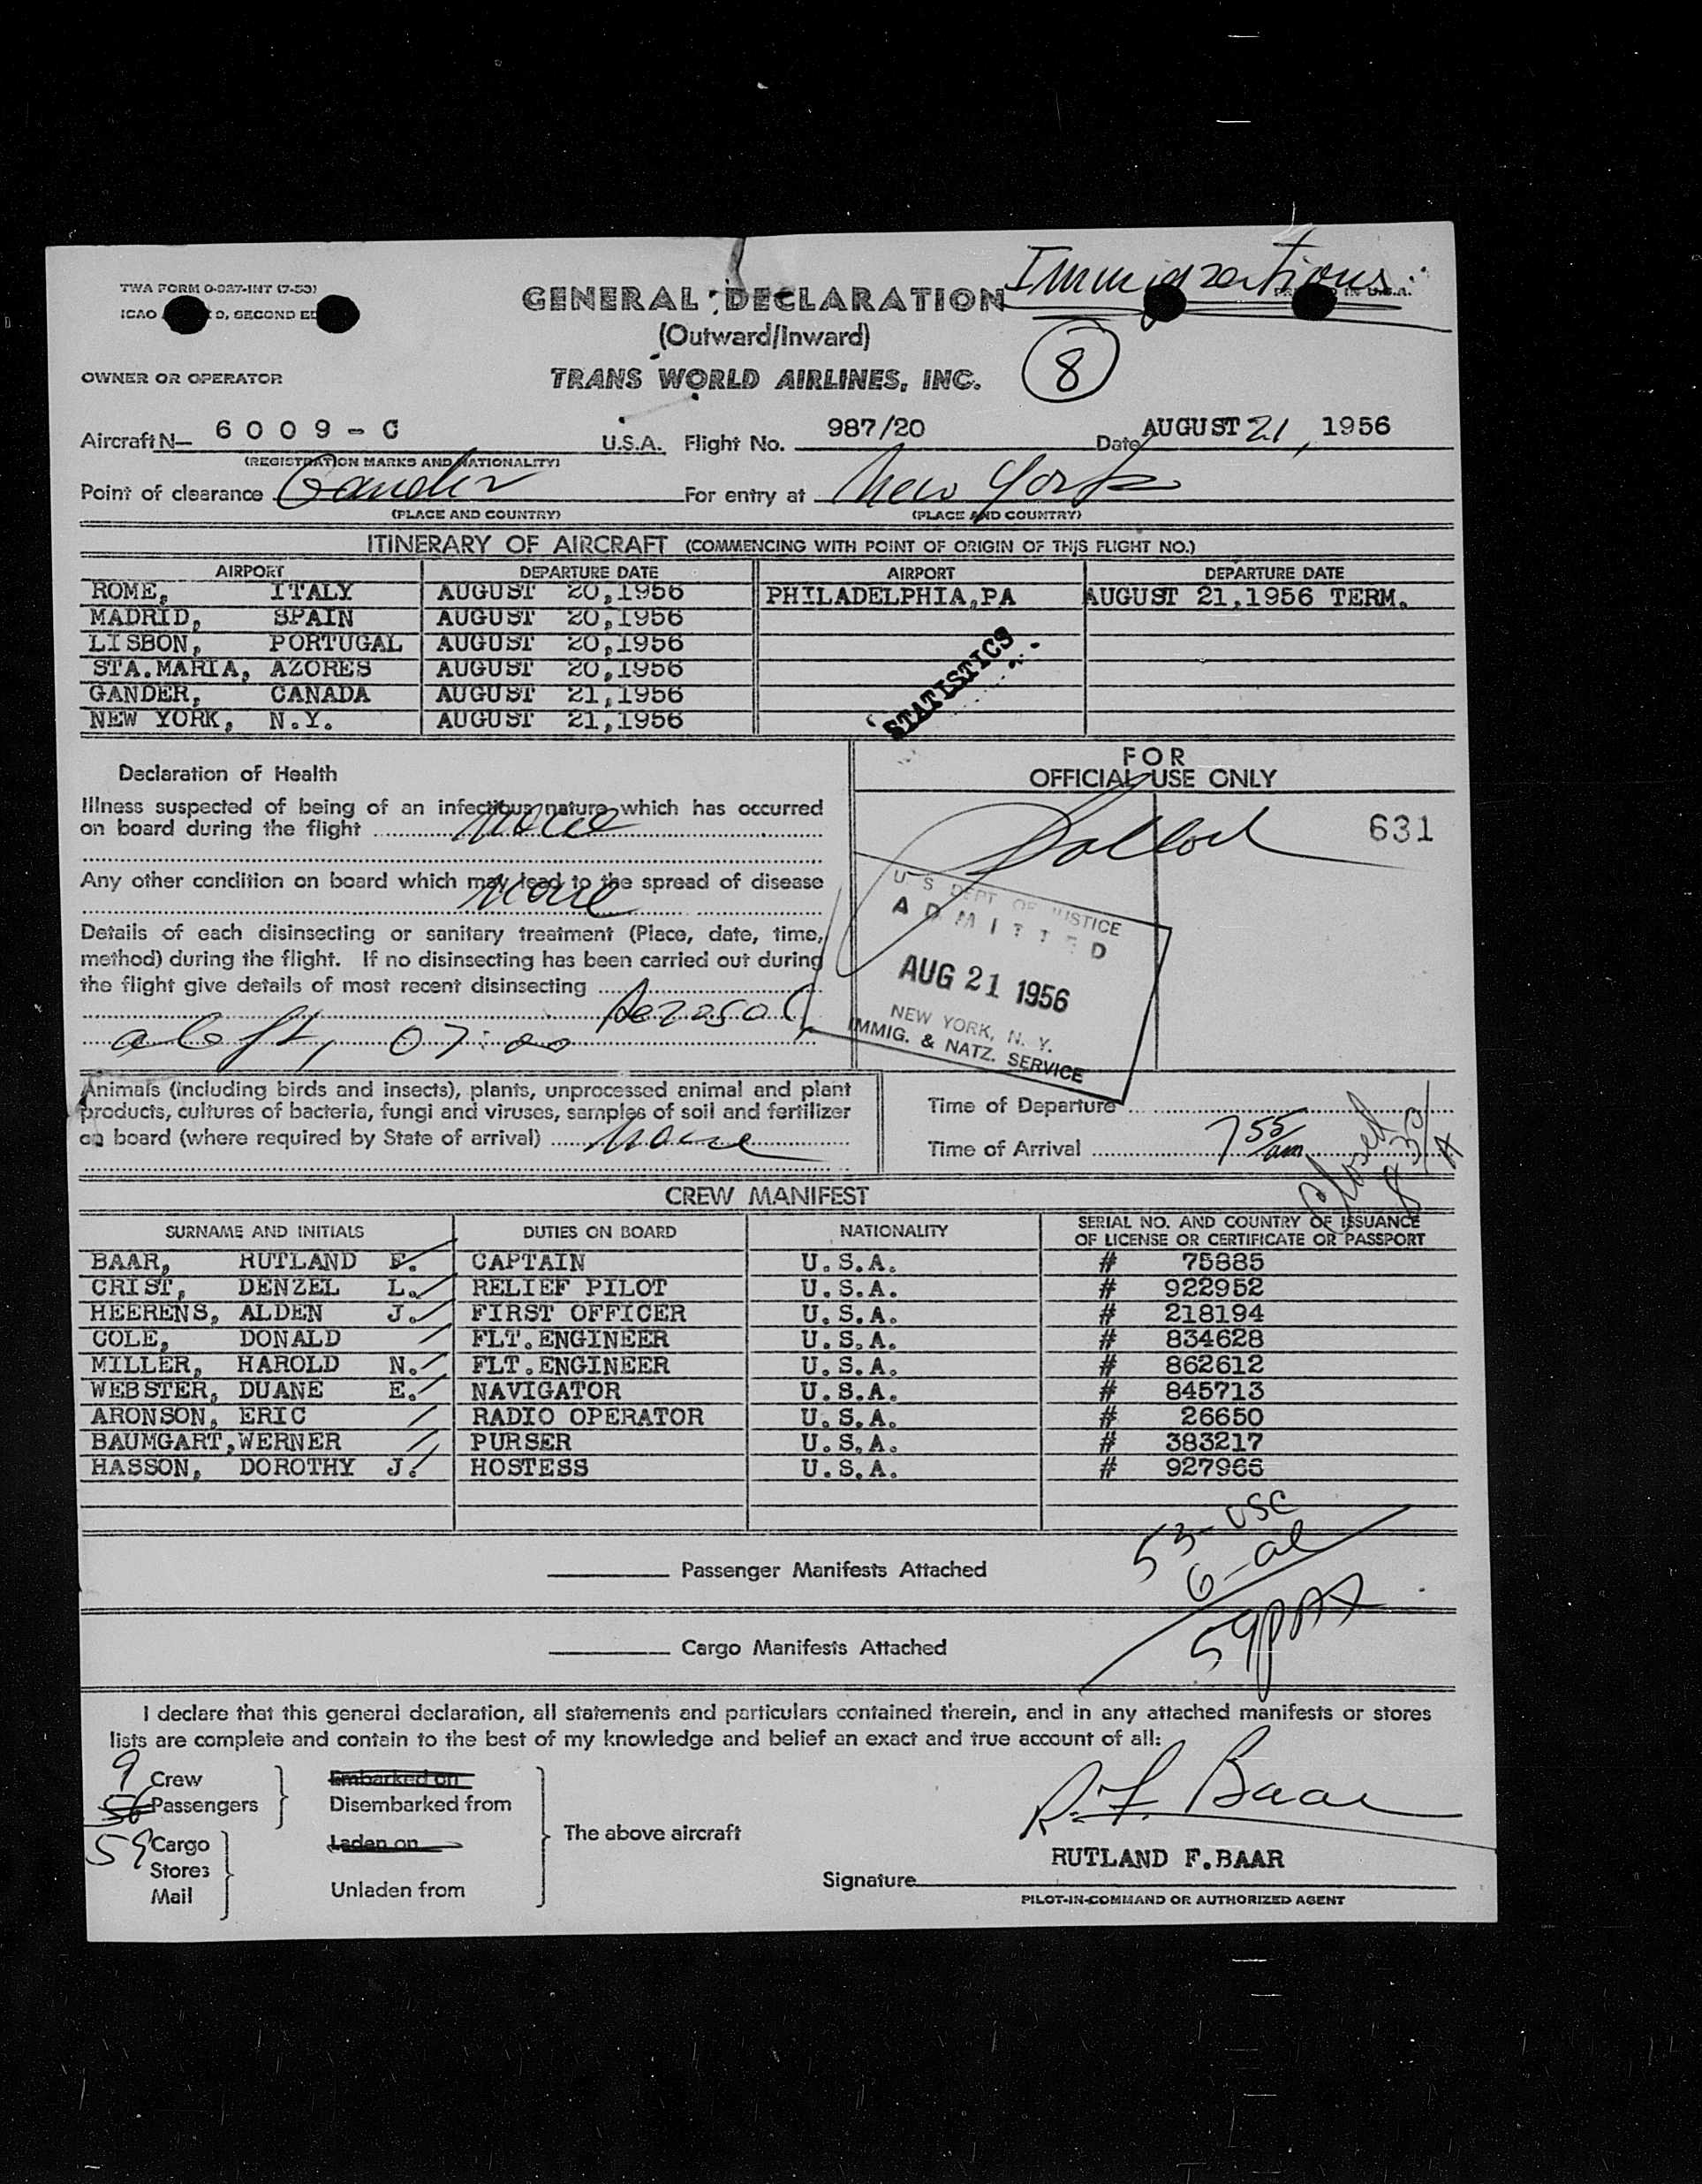 Immigrations
TWA FORM O-927-INT (7-53)
ICAO 9, SECOND ED
GENERAL DECLARATION
(Outward/Inward)
8
OWNER OR OPERATOR
TRANS WORLD AIRLINES, INC.
Aircraft N— 6009-C U.S.A. Flight No. 987/20 Date AUGUST 21, 1956
(REGISTRATION MARKS AND NATIONALITY)
Point of clearance Gander For entry at New York
(PLACE AND COUNTRY) (PLACE AND COUNTRY)
ITINERARY OF AIRCRAFT (COMMENCING WITH POINT OF ORIGIN OF THIS FLIGHT NO.)
AIRPORT DEPARTURE DATE AIRPORT DEPARTURE DATE
ROME, ITALY AUGUST 20,1956 PHILADELPHIA,PA AUGUST 21,1956 TERM.
MADRID, SPAIN AUGUST 20,1956
LISBON, PORTUGAL AUGUST 20,1956
STA.MARIA, AZORES AUGUST 20,1956
GANDER, CANADA AUGUST 21,1956
NEW YORK, N.Y. AUGUST 21,1956
STATISTICS
Declaration of Health
Illness suspected of being of an infectious nature which has occurred
on board during the flight None
Any other condition on board which may lead to the spread of disease
None
Details of each disinsecting or sanitary treatment (Place, date, time,
method) during the flight. If no disinsecting has been carried out during
the flight give details of most recent disinsecting
Aerosol
aloft, 07:00
FOR
OFFICIAL USE ONLY
631
U S DEPT OF JUSTICE
ADMITTED
AUG 21 1956
NEW YORK, N. Y.
IMMIG. & NATZ. SERVICE
Animals (including birds and insects), plants, unprocessed animal and plant
products, cultures of bacteria, fungi and viruses, samples of soil and fertilizer
on board (where required by State of arrival) None
Time of Departure
Time of Arrival 7 55/am
Closed 8 30/A
CREW MANIFEST
SURNAME AND INITIALS DUTIES ON BOARD NATIONALITY SERIAL NO. AND COUNTRY OF ISSUANCE
OF LICENSE OR CERTIFICATE OR PASSPORT
BAAR, RUTLAND F. CAPTAIN U.S.A. # 75885
CRIST, DENZEL L. RELIEF PILOT U.S.A. # 922952
HEERENS, ALDEN J. FIRST OFFICER U.S.A. # 218194
COLE, DONALD FLT.ENGINEER U.S.A. # 834628
MILLER, HAROLD N. FLT.ENGINEER U.S.A. # 862612
WEBSTER, DUANE E. NAVIGATOR U.S.A. # 845713
ARONSON, ERIC RADIO OPERATOR U.S.A. # 26650
BAUMGART,WERNER PURSER U.S.A. # 383217
HASSON, DOROTHY J. HOSTESS U.S.A. # 927966
53-USC
6-al
59 pax
Passenger Manifests Attached
Cargo Manifests Attached
I declare that this general declaration, all statements and particulars contained therein, and in any attached manifests or stores
lists are complete and contain to the best of my knowledge and belief an exact and true account of all:
9 Crew
56 Passengers
59
Cargo
Stores
Mail
Embarked on
Disembarked from
Laden on
Unladen from
The above aircraft
R.F. Baar
RUTLAND F.BAAR
Signature
PILOT-IN-COMMAND OR AUTHORIZED AGENT